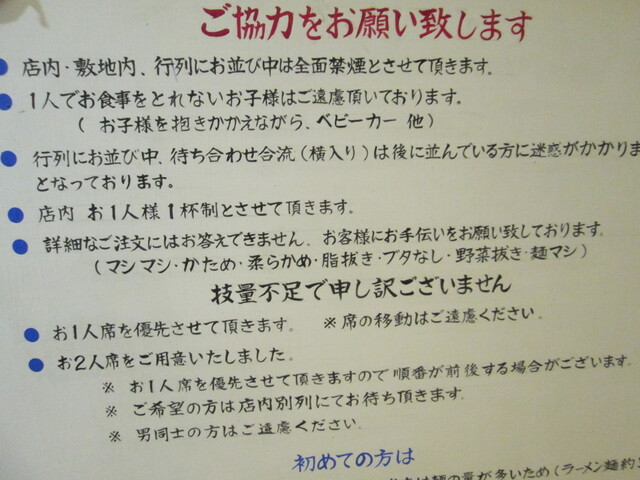 ご協力をお願い致します
● 店内・敷地内、行列にお並び中は全面禁煙とさせて頂きます。
● 1人でお食事をとれないお子様はご遠慮頂いております。
( お子様を抱きかかえながら、ベビーカー 他)
● 行列にお並び中、待ち合わせ合流(横入り)は後に並んでいる方に迷惑がかかりま
となっております。
● 店内 お1人様1杯制とさせて頂きます。
● 詳細なご注文にはお答えできません。お客様にお手伝いをお願い致しております。
(マシマシ・かため・柔らかめ・脂抜き・ブタなし・野菜抜き・麺マシ)
技量不足で申し訳ございません
● お1人席を優先させて頂きます。 ※席の移動はご遠慮ください。
● お2人席をご用意いたしました。
※ お1人席を優先させて頂きますので順番が前後する場合がございます。
※ ご希望の方は店内別列にてお待ち頂きます。
※ 男同士の方はご遠慮ください。
初めての方は
は麺の量が多いため(ラーメン麺約